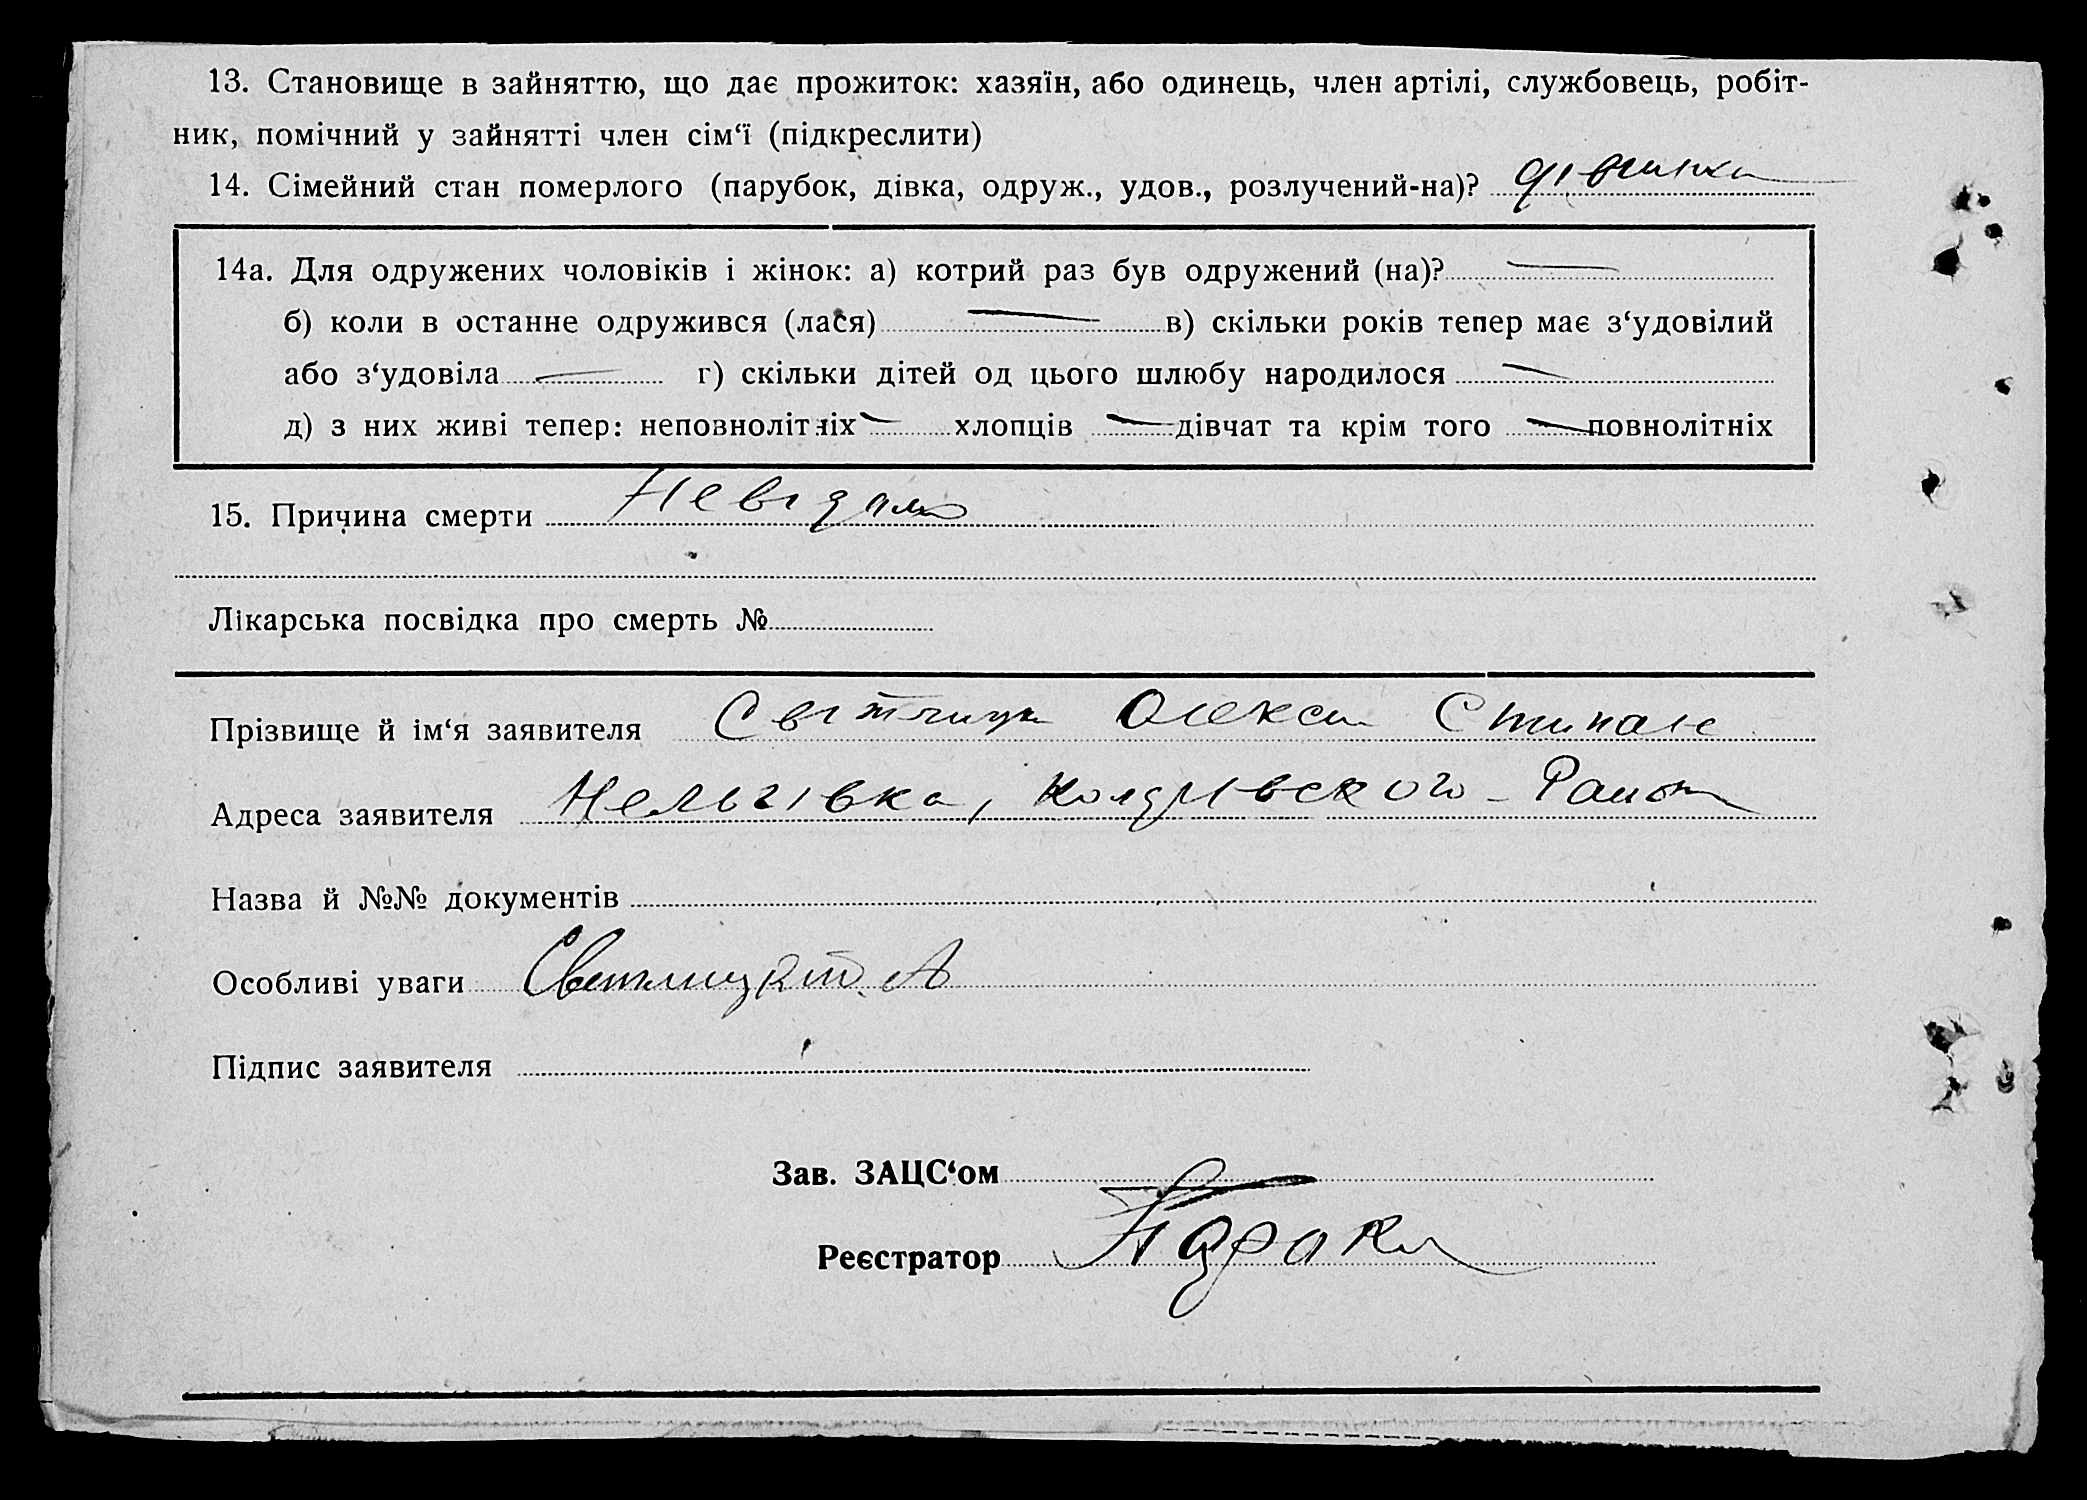 13. Становище в зайняттю, що дає прожиток: хазяїн, або одинець, член артілі, службовець, робіт-
ник, помічний у зайнятті член сім‘ї (підкреслити)
14. Сімейний стан померлого (парубок, дівка, одруж., удов., розлучений-на)? дівчинка
14а. Для одружених чоловіків і жінок: а) котрий раз був одружений (на)? —
б) коли в останне одружився (лася) — в) скільки років тепер має з‘удовілий
або з‘удовіла — г) скільки дітей од цього шлюбу народилося —
д) з них живі тепер: неповнолітніх — хлопців — дівчат та крім того — повнолітніх
15. Причина смерти Невідома
Лікарська посвідка про смерть №
Прізвище й ім‘я заявителя Олекса
Адреса заявителя Нельгівка, Район
Назва й №№ документів
Особливі уваги А
Підпис заявителя
Зав. ЗАЦС‘ом
Реєстратор